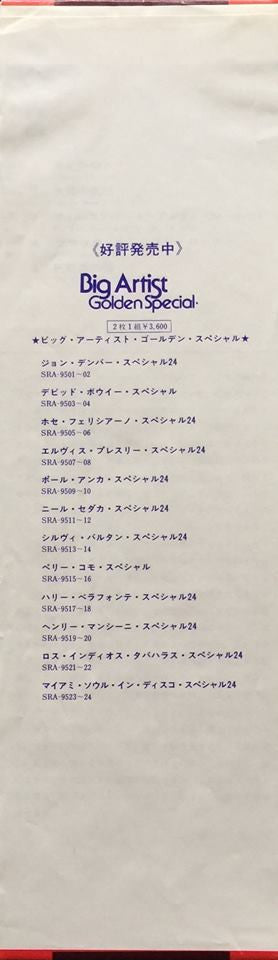 《好評発売中》
Big Artist
Golden Special
2枚1組￥3,600
★ビッグ・アーティスト・ゴールデン・スペシャル★
ジョン・デンバー・スペシャル24
SRA-9501〜02
デビッド・ボウイー・スペシャル
SRA-9503〜04
ホセ・フェリシアーノ・スペシャル24
SRA-9505〜06
エルヴィス・プレスリー・スペシャル24
SRA-9507〜08
ポール・アンカ・スペシャル24
SRA-9509〜10
ニール・セダカ・スペシャル24
SRA-9511〜12
シルヴィ・バルタン・スペシャル24
SRA-9513〜14
ペリー・コモ・スペシャル
SRA-9515〜16
ハリー・ベラフォンテ・スペシャル24
SRA-9517〜18
ヘンリー・マンシーニ・スペシャル24
SRA-9519〜20
ロス・インディオス・タバハラス・スペシャル24
SRA-9521〜22
マイアミ・ソウル・イン・ディスコ・スペシャル24
SRA-9523〜24